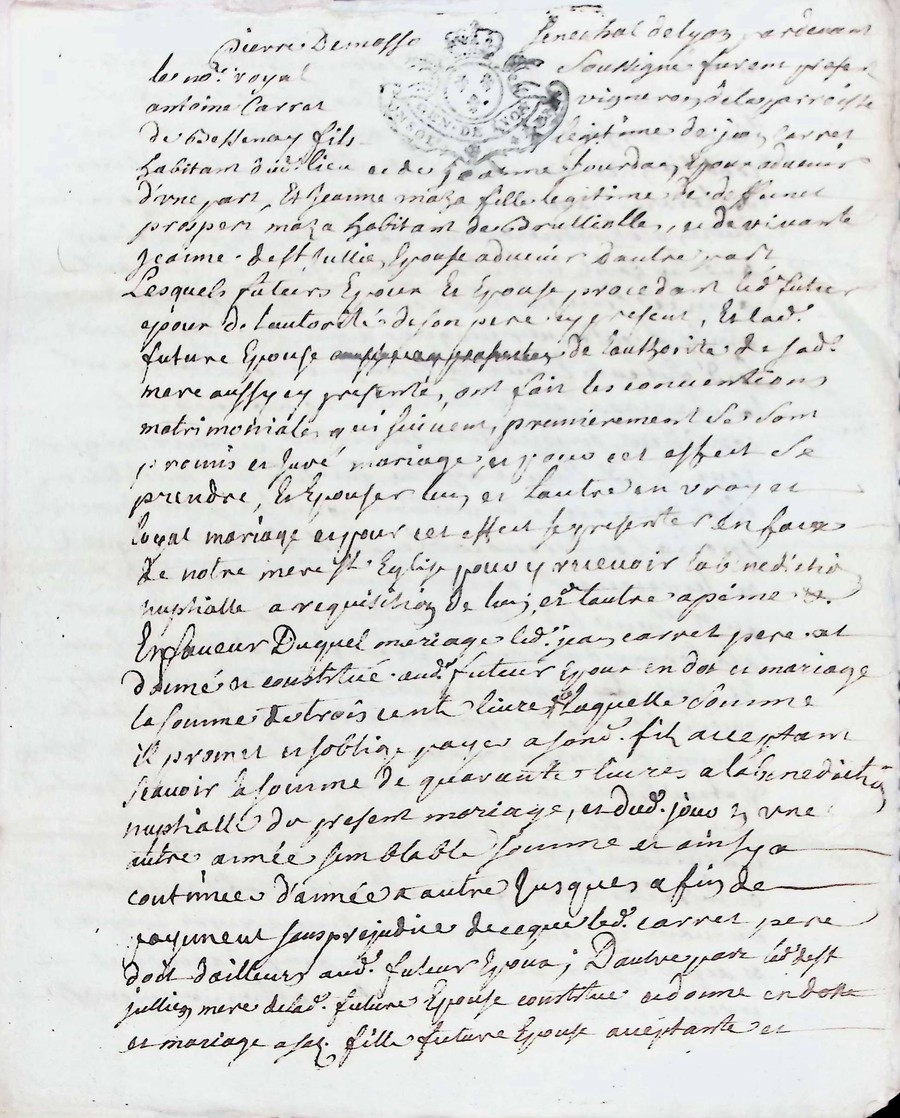 pierre Demasso senechal de lyon pardevant
le no.^e royal soussigné furent presen
antoine Carret vigneron de la parroisse
de Bessenay fils legitime de jean Carret
habitant dud. lieu et de jeanne jourdan, Epoux advenir
d'vne part, Et jeanne maza fille legitime de deffunct
prosper maza habitant de Brullielle, et de vivante
jeanne de St jullien Epouse advenir dautre part
Lesquels futeurs Epoux Et Epouse procedant led.^t futeur
epoux de l'autorité de son pere cy present, Et lad.^e
future Epouse de lauthorité de sad.^e
mere aussy cy presente, ont fait les conventions
matrimoniales qui suivent, premierement se sont
promis et juré mariage, et pour cet effect se
prendre, Et Epouser lun et Lautre en vray et
loyal mariage et pour cet effect se presenter en face
de notre mere S^te Eglise pour y recevoir la benediction
nuptialle a requisition de lun, et lautre a peine &.
En faveur Duquel mariage led.^t jean carret pere at
donné et constitué aud.^t futeur Epoux en dot et mariage
la somme de trois cent livres laquelle somme
il promet et soblige payer a sond.^t fils acceptant
scavoir la somme de quarante livres a la benediction
nuptialle du present mariage, et dud.^t jour en vne
autre année semblable somme et ainsy a
continuer d'année a autre jusques a fin de
payment sans prejudice de ce que led.^t carret pere
doit d'ailleurs aud.^t futeur Epoux; Dautre part lad. de st
jullien mere de lad.^e future Epouse constitue et donne en dotte
et mariage a sad. fille future Epouse acceptante et